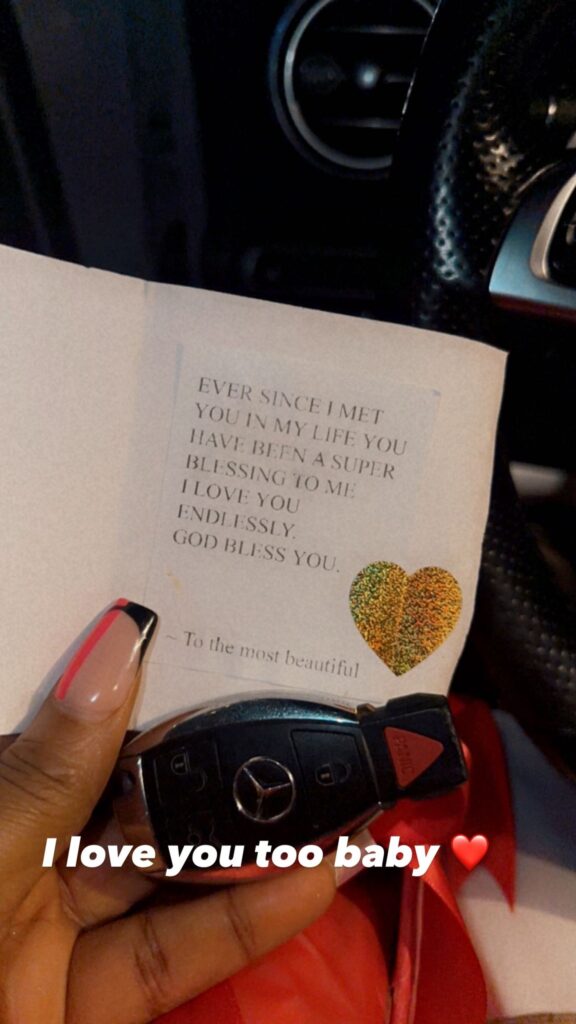 EVER SINCE I MET
YOU IN MY LIFE YOU
HAVE BEEN A SUPER
BLESSING TO ME
I LOVE YOU
ENDLESSLY.
GOD BLESS YOU.
~ To the most beautiful
PANIC
I love you too baby ❤️